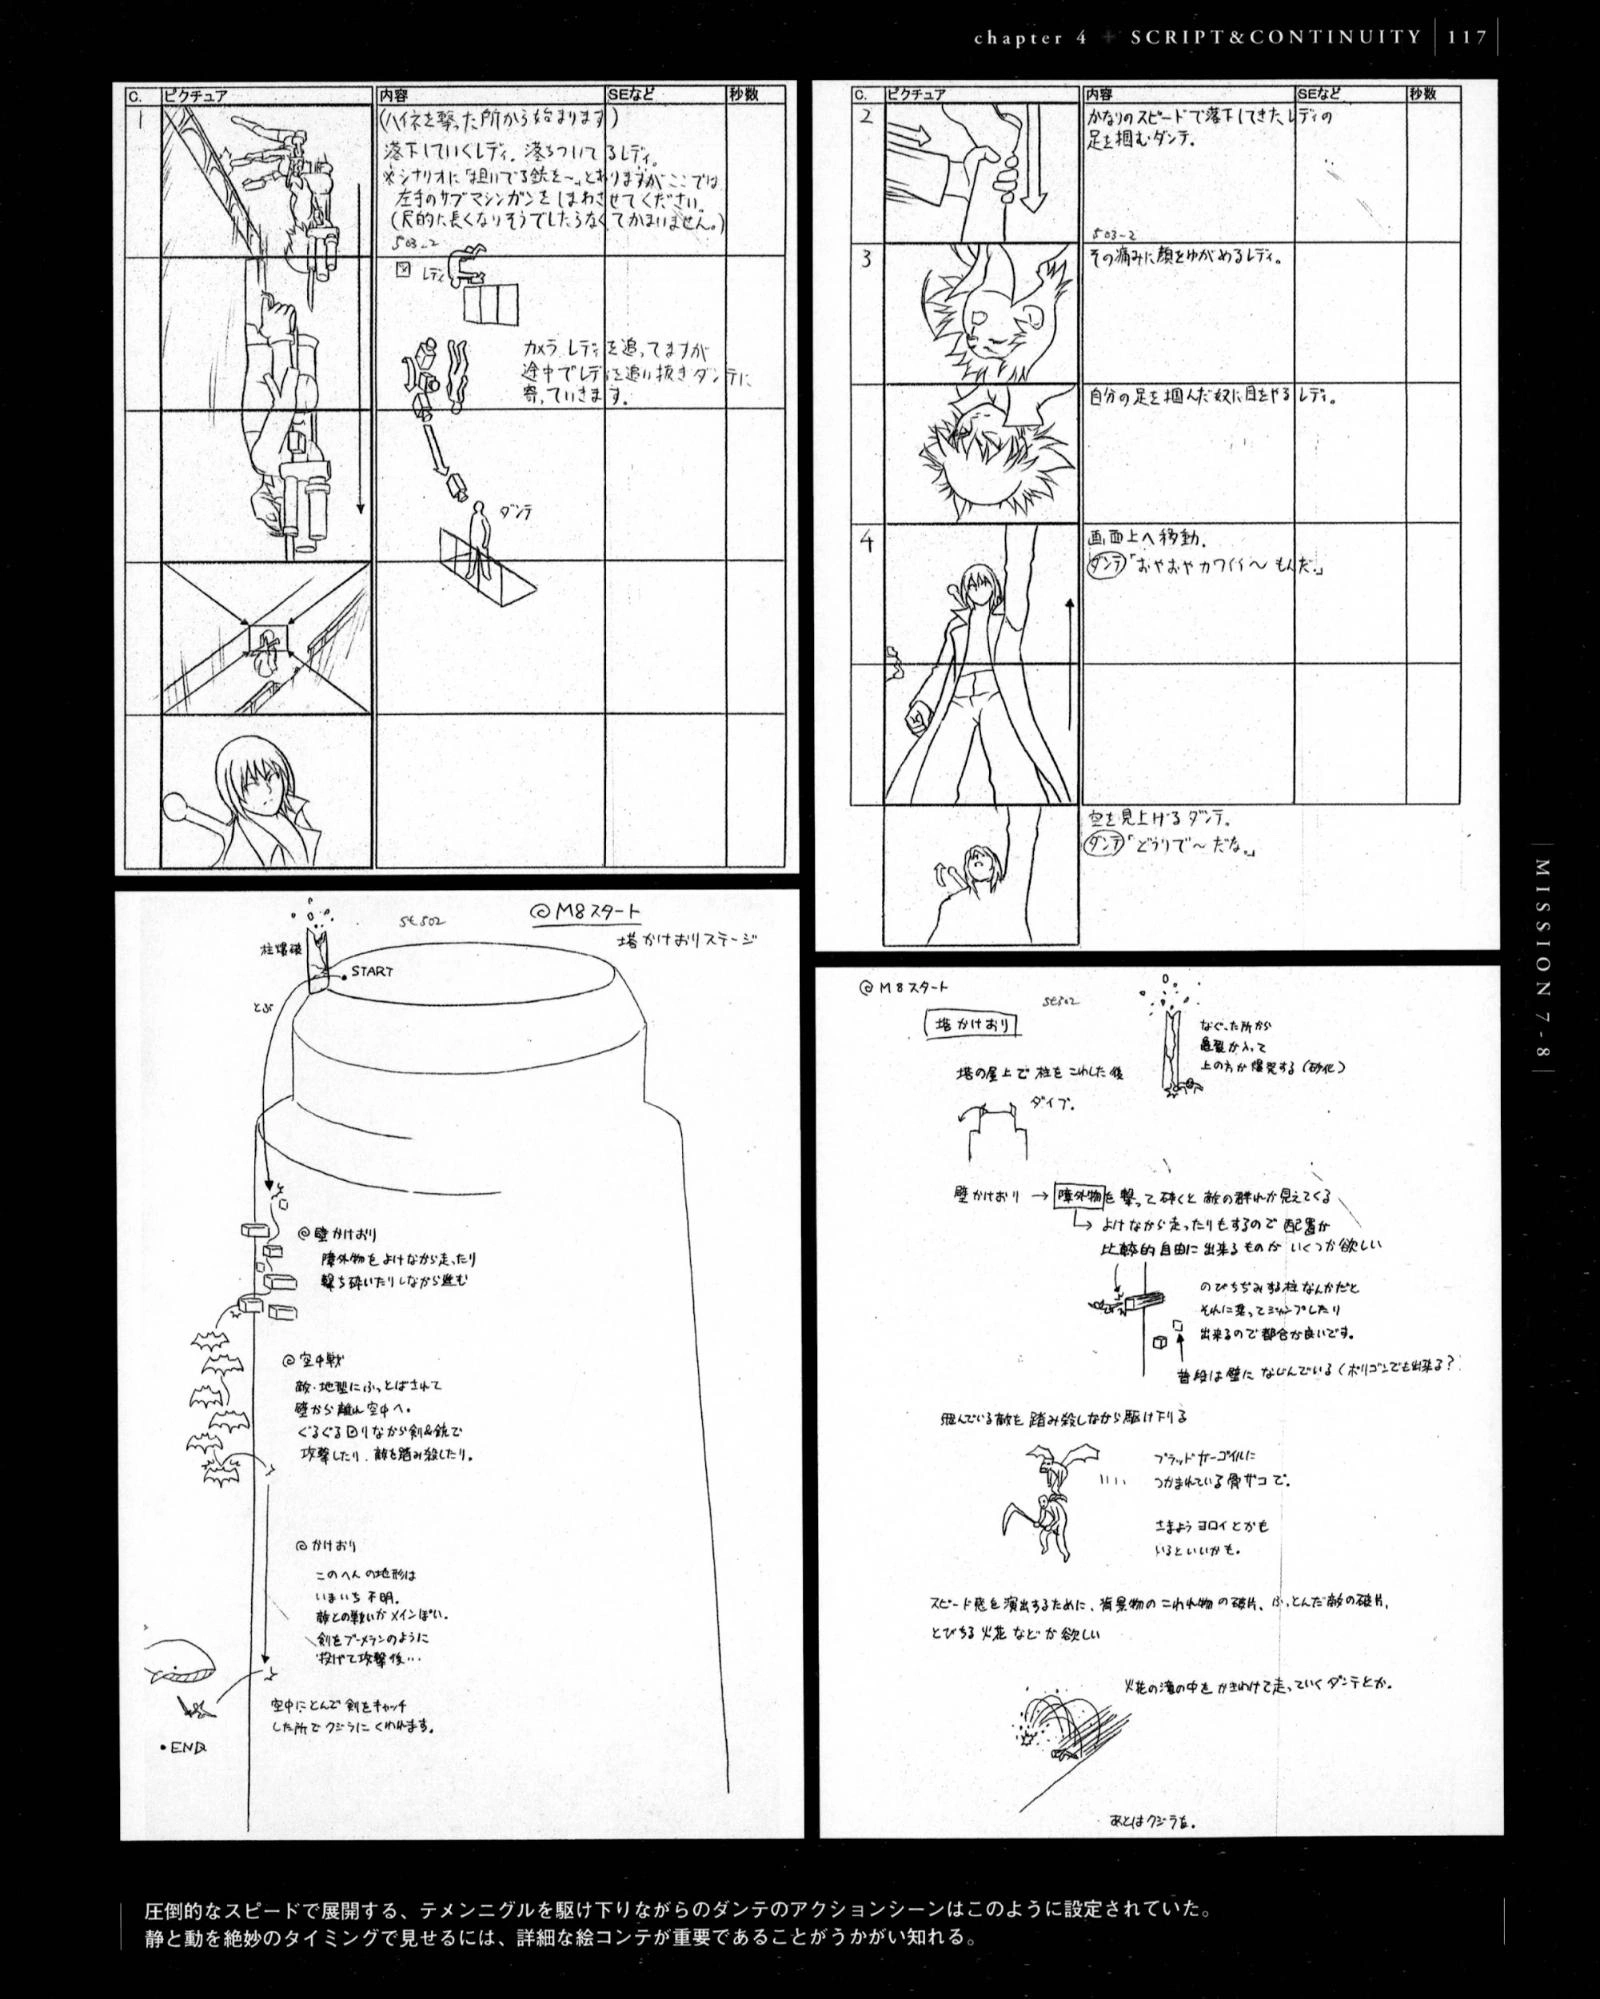 chapter 4 + SCRIPT&CONTINUITY 117
C. ピクチュア 内容 SEなど 秒数
1
(ハイネを撃った所から始まります)
落下していくレディ。落ちついてるレディ。
※シナリオに「担いでる銃を〜」とありますがここでは
左手のサブマシンガンをしまわさせてください。
(尺的に長くなりそうでしたらなくてかまいません。)
503-2
図 レディ
カメラ レディを追ってますが
途中でレディを追い抜きダンテに
寄っていきます。
ダンテ
C. ピクチュア 内容 SEなど 秒数
2
かなりのスピードで落下してきた、レディの
足を掴むダンテ。
503-2
3
その痛みに顔をゆがめるレディ。
自分の足を掴んだ奴に目をやるレディ。
4
画面上へ移動。
ダンテ「おやおやカワイイ〜もんだ。」
空を見上げるダンテ。
ダンテ「どうりで〜だな。」
st502
@M8スタート
塔かけおりステージ
柱爆破
START
とぶ
@壁かけおり
障外物をよけながら走ったり
撃ち砕いたりしながら進む
@空中戦
敵・地型にふっとばされて
壁から離れ空中へ。
ぐるぐる回りながら剣&銃で
攻撃したり、敵を踏み殺したり。
@かけおり
このへんの地形は
いまいち不明。
敵との戦いがメインぽい。
剣をブーメランのように
投げて攻撃後…
空中にとんで剣をキャッチ
した所でクジラにくわれます。
・END
@M8スタート
st502
塔かけおり
なぐった所から
亀裂が入って
上の方が爆発する(砂化)
塔の屋上で柱をこわした後
ダイブ。
壁かけおり → 障外物を撃って砕くと敵の群れが見えてくる
よけながら走ったりもするので配置が
比較的自由に出来るものがいくつか欲しい
のびちぢみする柱なんかだと
それに乗ってジャンプしたり
出来るので都合が良いです。
普段は壁になじんでいる(ポリゴンでも出来る?
飛んでいる敵を踏み殺しながら駆け下りる
ブラッドガーゴイルに
つかまれている骨ザコで。
さまようヨロイとかも
いるといいかも。
スピード感を演出するために、背景物のこわれ物の破片、ふっとんだ敵の破片、
とびちる火花などが欲しい
火花の滝の中をかきわけて走っていくダンテとか。
あとはクジラを。
MISSION 7-8
圧倒的なスピードで展開する、テメンニグルを駆け下りながらのダンテのアクションシーンはこのように設定されていた。
静と動を絶妙のタイミングで見せるには、詳細な絵コンテが重要であることがうかがい知れる。